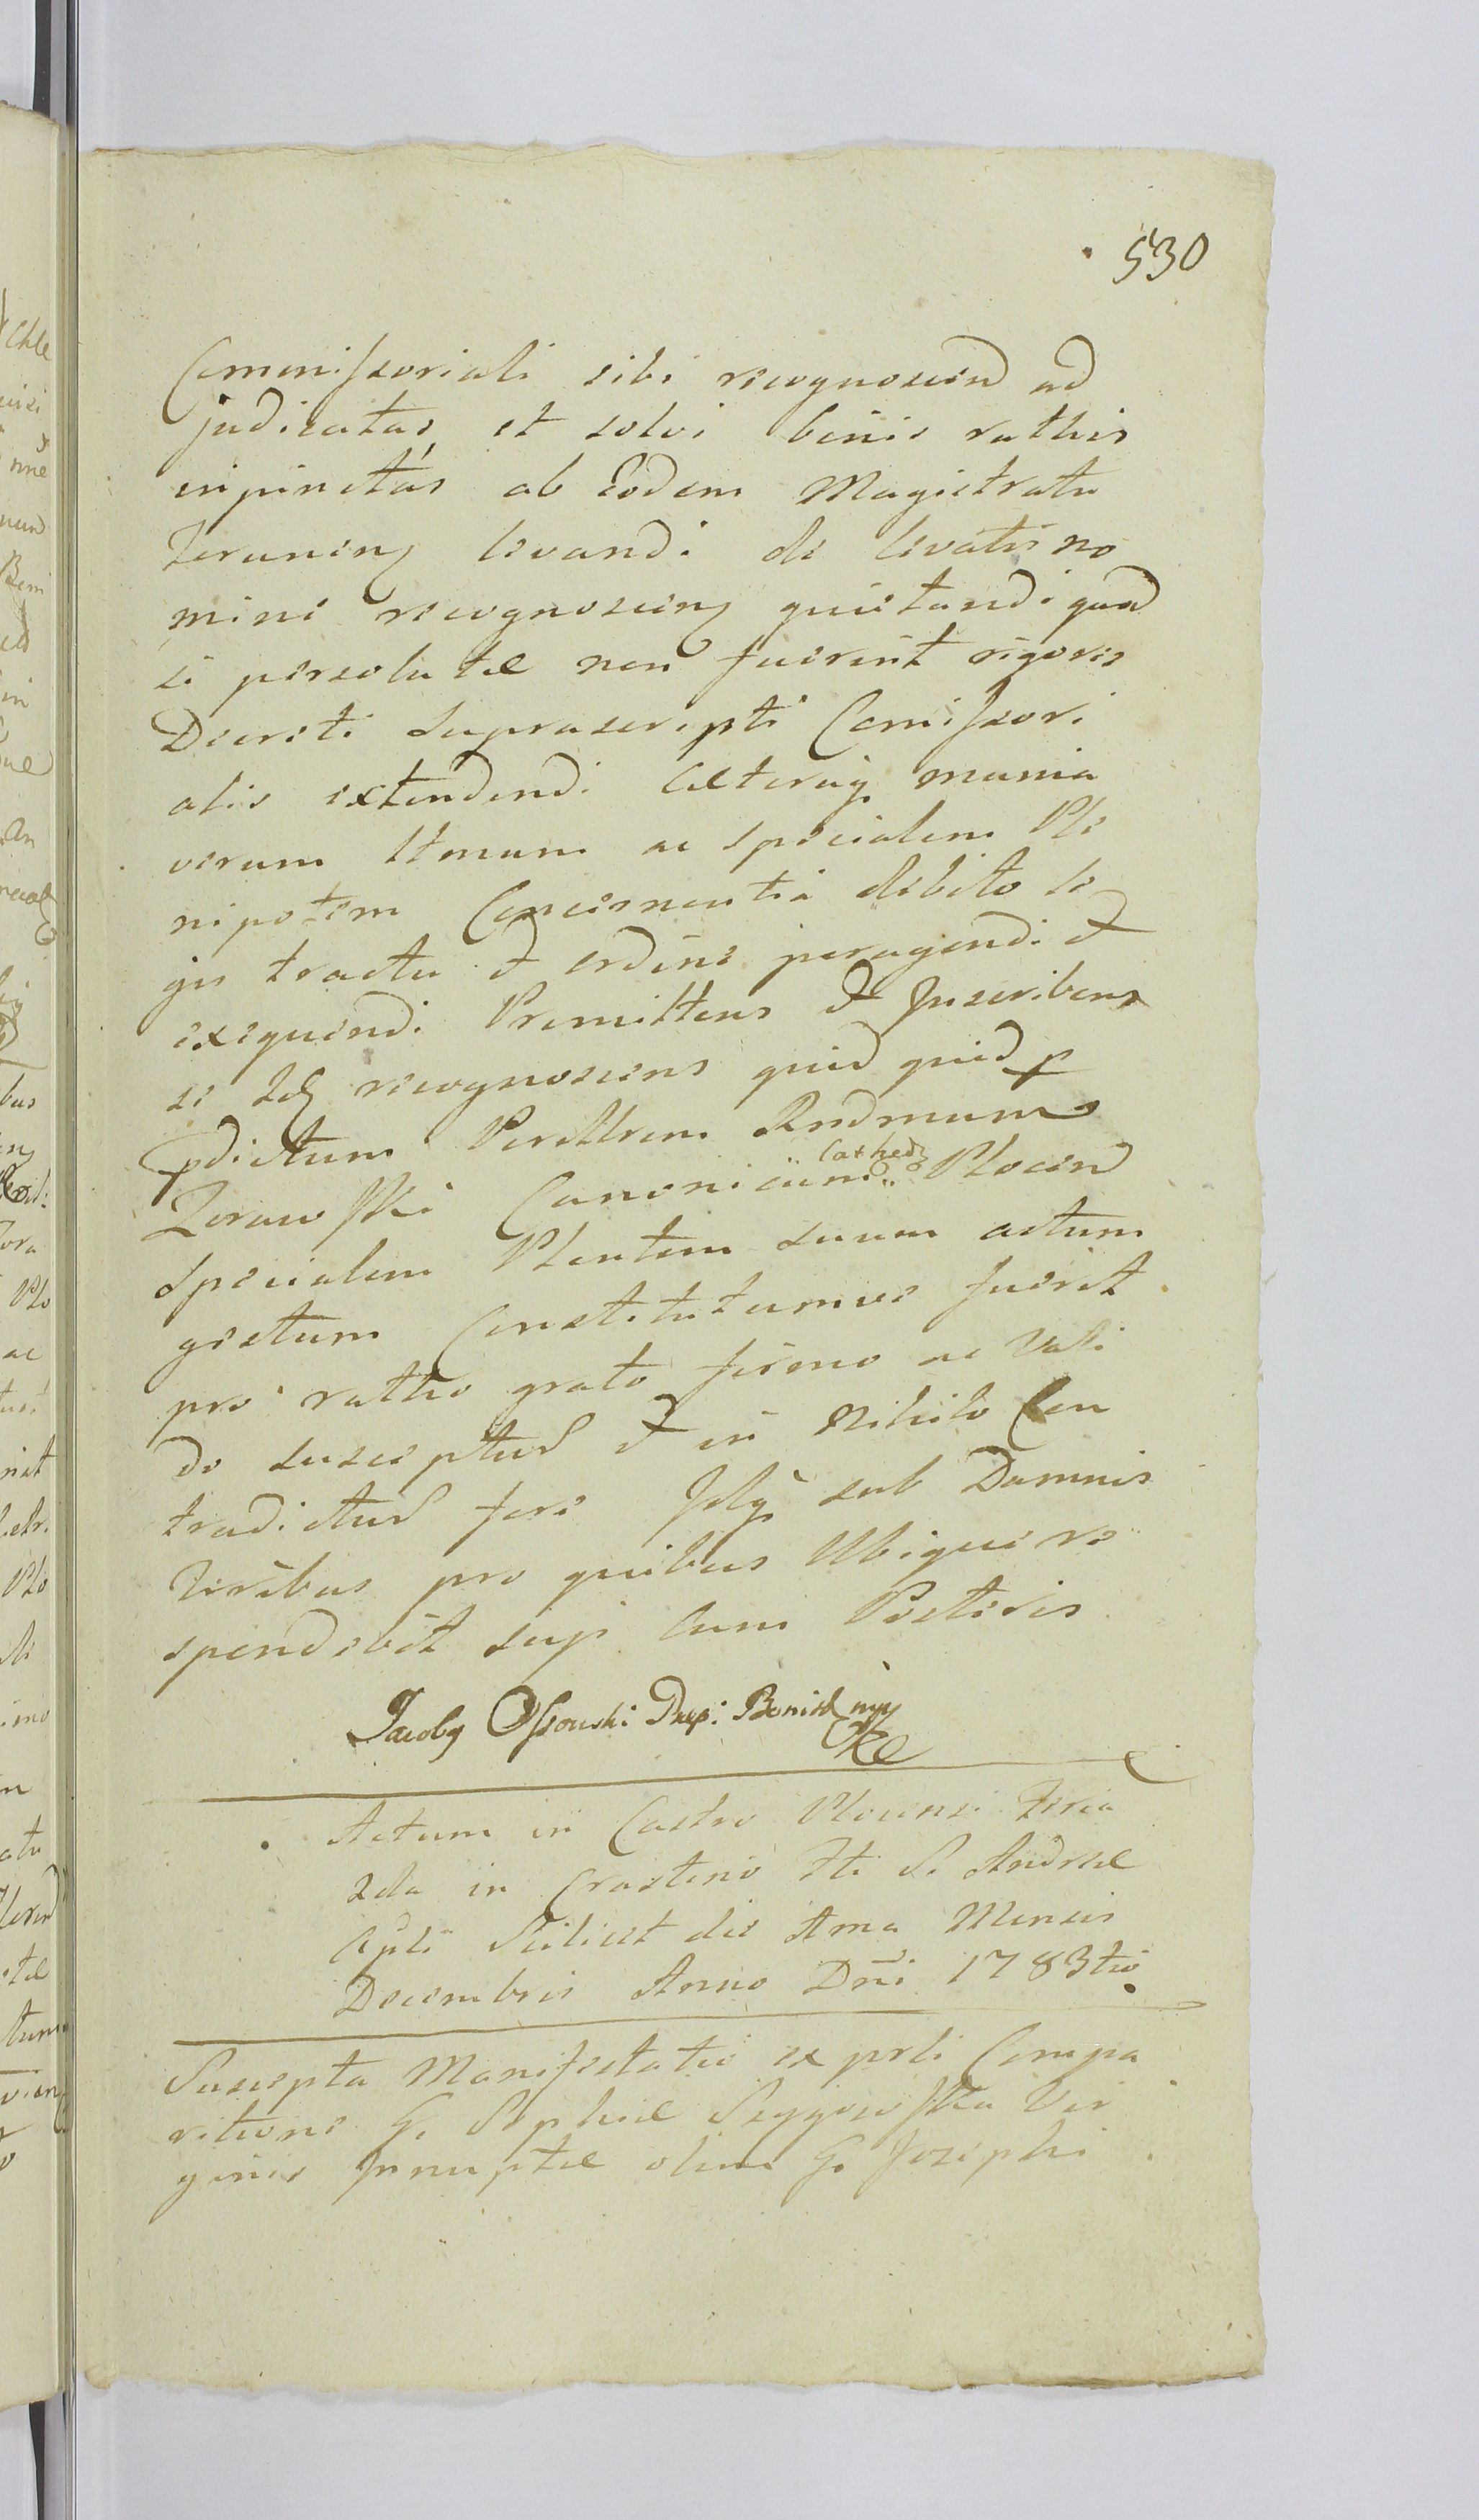 530
Commissoriali sibi recognoscend ad
judicatas et solvi binis rathis
inpinctas ab Eodem Magistratu
levandi de levatis no
mine recognoscenq quietandi quod
si persolutæ non fuerint rigoris
Decreti suprascripti Comissori
alis extendendi Cæteraq munia
verum ltmum ac specialem Ple
nipotem Concernentia debito le
gis tractu et ordine peragendi et
exequendi Premittens et Inscribens
se Idq recognoscens quid quid p
pdictum Perillrem Rndmum
Zorawski Canonicum Cathed Plocen
specialem Plentem suum actum
gestum Constitutumve fuerit
pro ratho grato firmo ac vali
do suscepturd et in nihilo Con
tradicturd fore Idq sub Damnis
Terribus pro quibus Ubique re
spondebit seqs Cum Posteris
Jacobg Ossowski Prep: Bonisl mpp
Actum in Castro Plocensi Feria
2da in Crastino fti S. Andreæ
Apli Scilicet die 1ma Mensis
Decembris Anno Dni 1783tio
Suscepta Manifestatio ex prsli Compa
ritione G. Sophiæ Virginis
Innuptæ olim G. Josephi